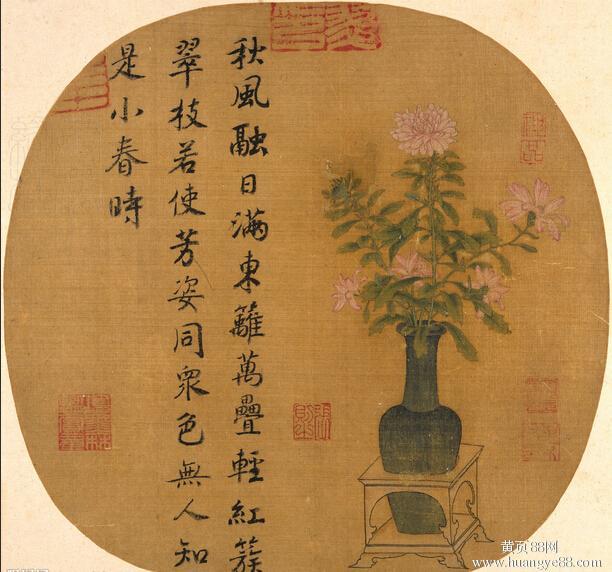 秋風融日滿東籬萬疊輕紅簇
翠枝若使芳姿同衆色無人知
是小春時
黄页88网
www.huangye88.com